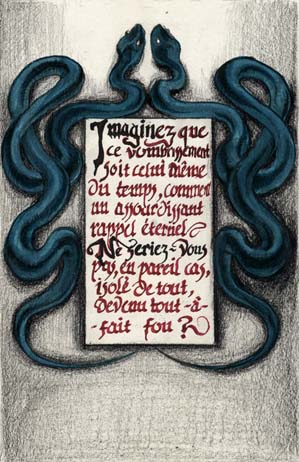 Imaginez que
ce vombissement
soit celui même
du temps, comment
un assourdissant
rappel éternel
Ne seriez-vous
pas, en pareil cas,
isolé de tout,
devenu tout-à-
-fait fou ?